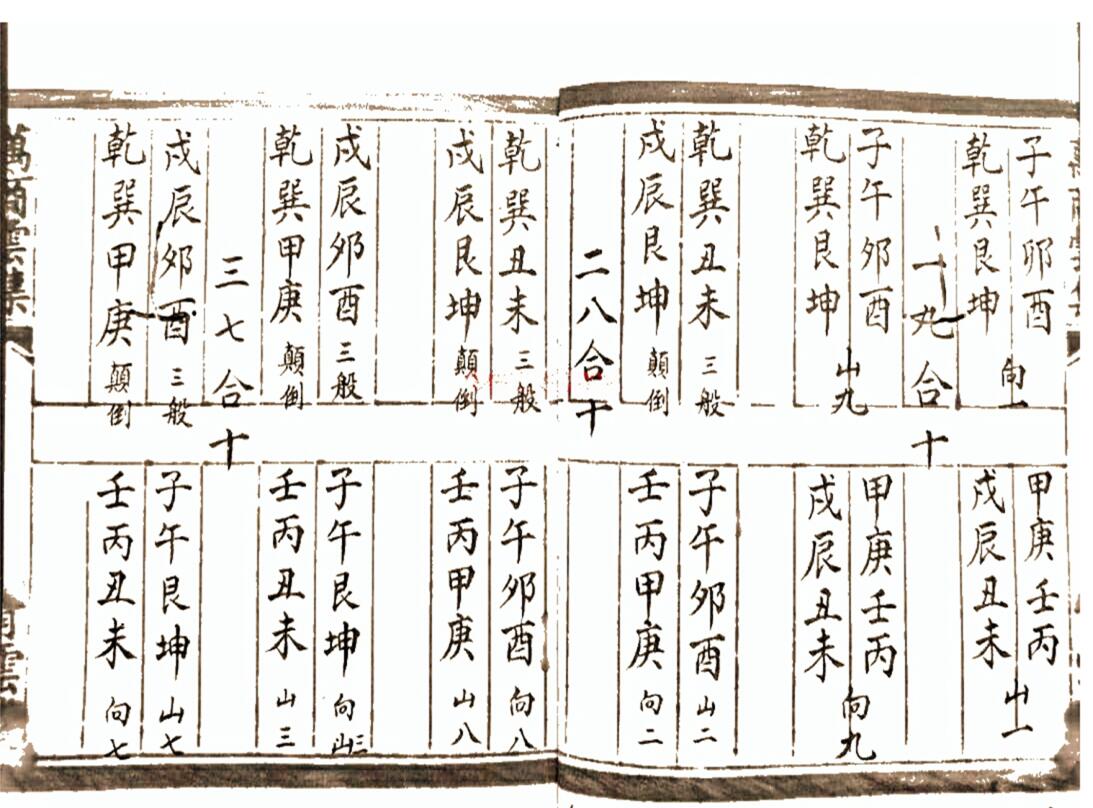 子午卯酉
乾巽艮坤
向一
甲庚壬丙
戌辰丑未
山一
一九合十
子午卯酉
乾巽艮坤
山九
甲庚壬丙
戌辰丑未
向九
乾巽丑未三般
戌辰艮坤顛倒
子午卯酉山二
壬丙甲庚向二
二八合十
乾巽丑未三般
戌辰艮坤顛倒
子午卯酉向八
壬丙甲庚山八
戌辰卯酉三般
乾巽甲庚顛倒
子午艮坤向三
壬丙丑未山三
三七合十
戌辰卯酉三般
乾巽甲庚顛倒
子午艮坤山七
壬丙丑未向七